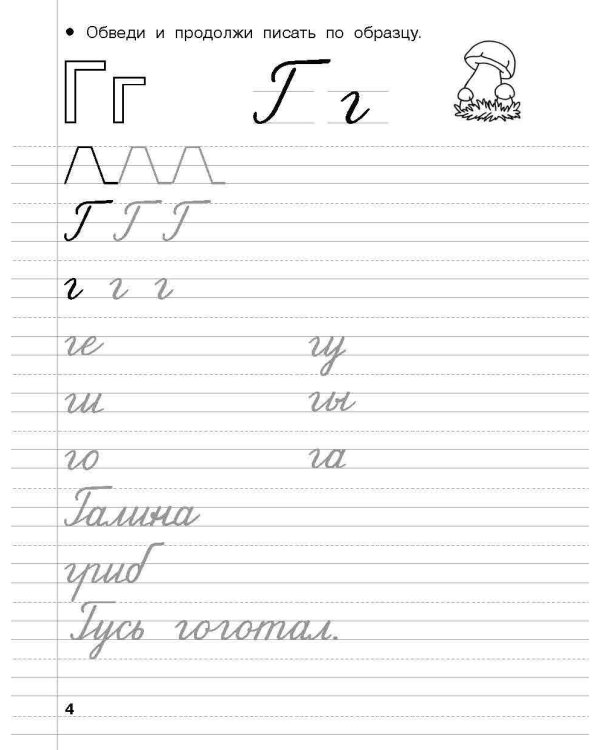 • Обведи и продолжи писать по образцу.
Гг Г г
Г Г Г
г г г
ге гу
ги гы
го га
Галина
гриб
Гусь гоготал.
4